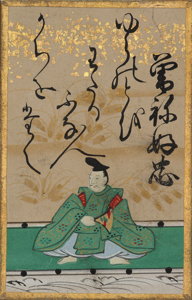 曾祢好忠
ゆらのとを
わたる
ふな人
かちをたえ